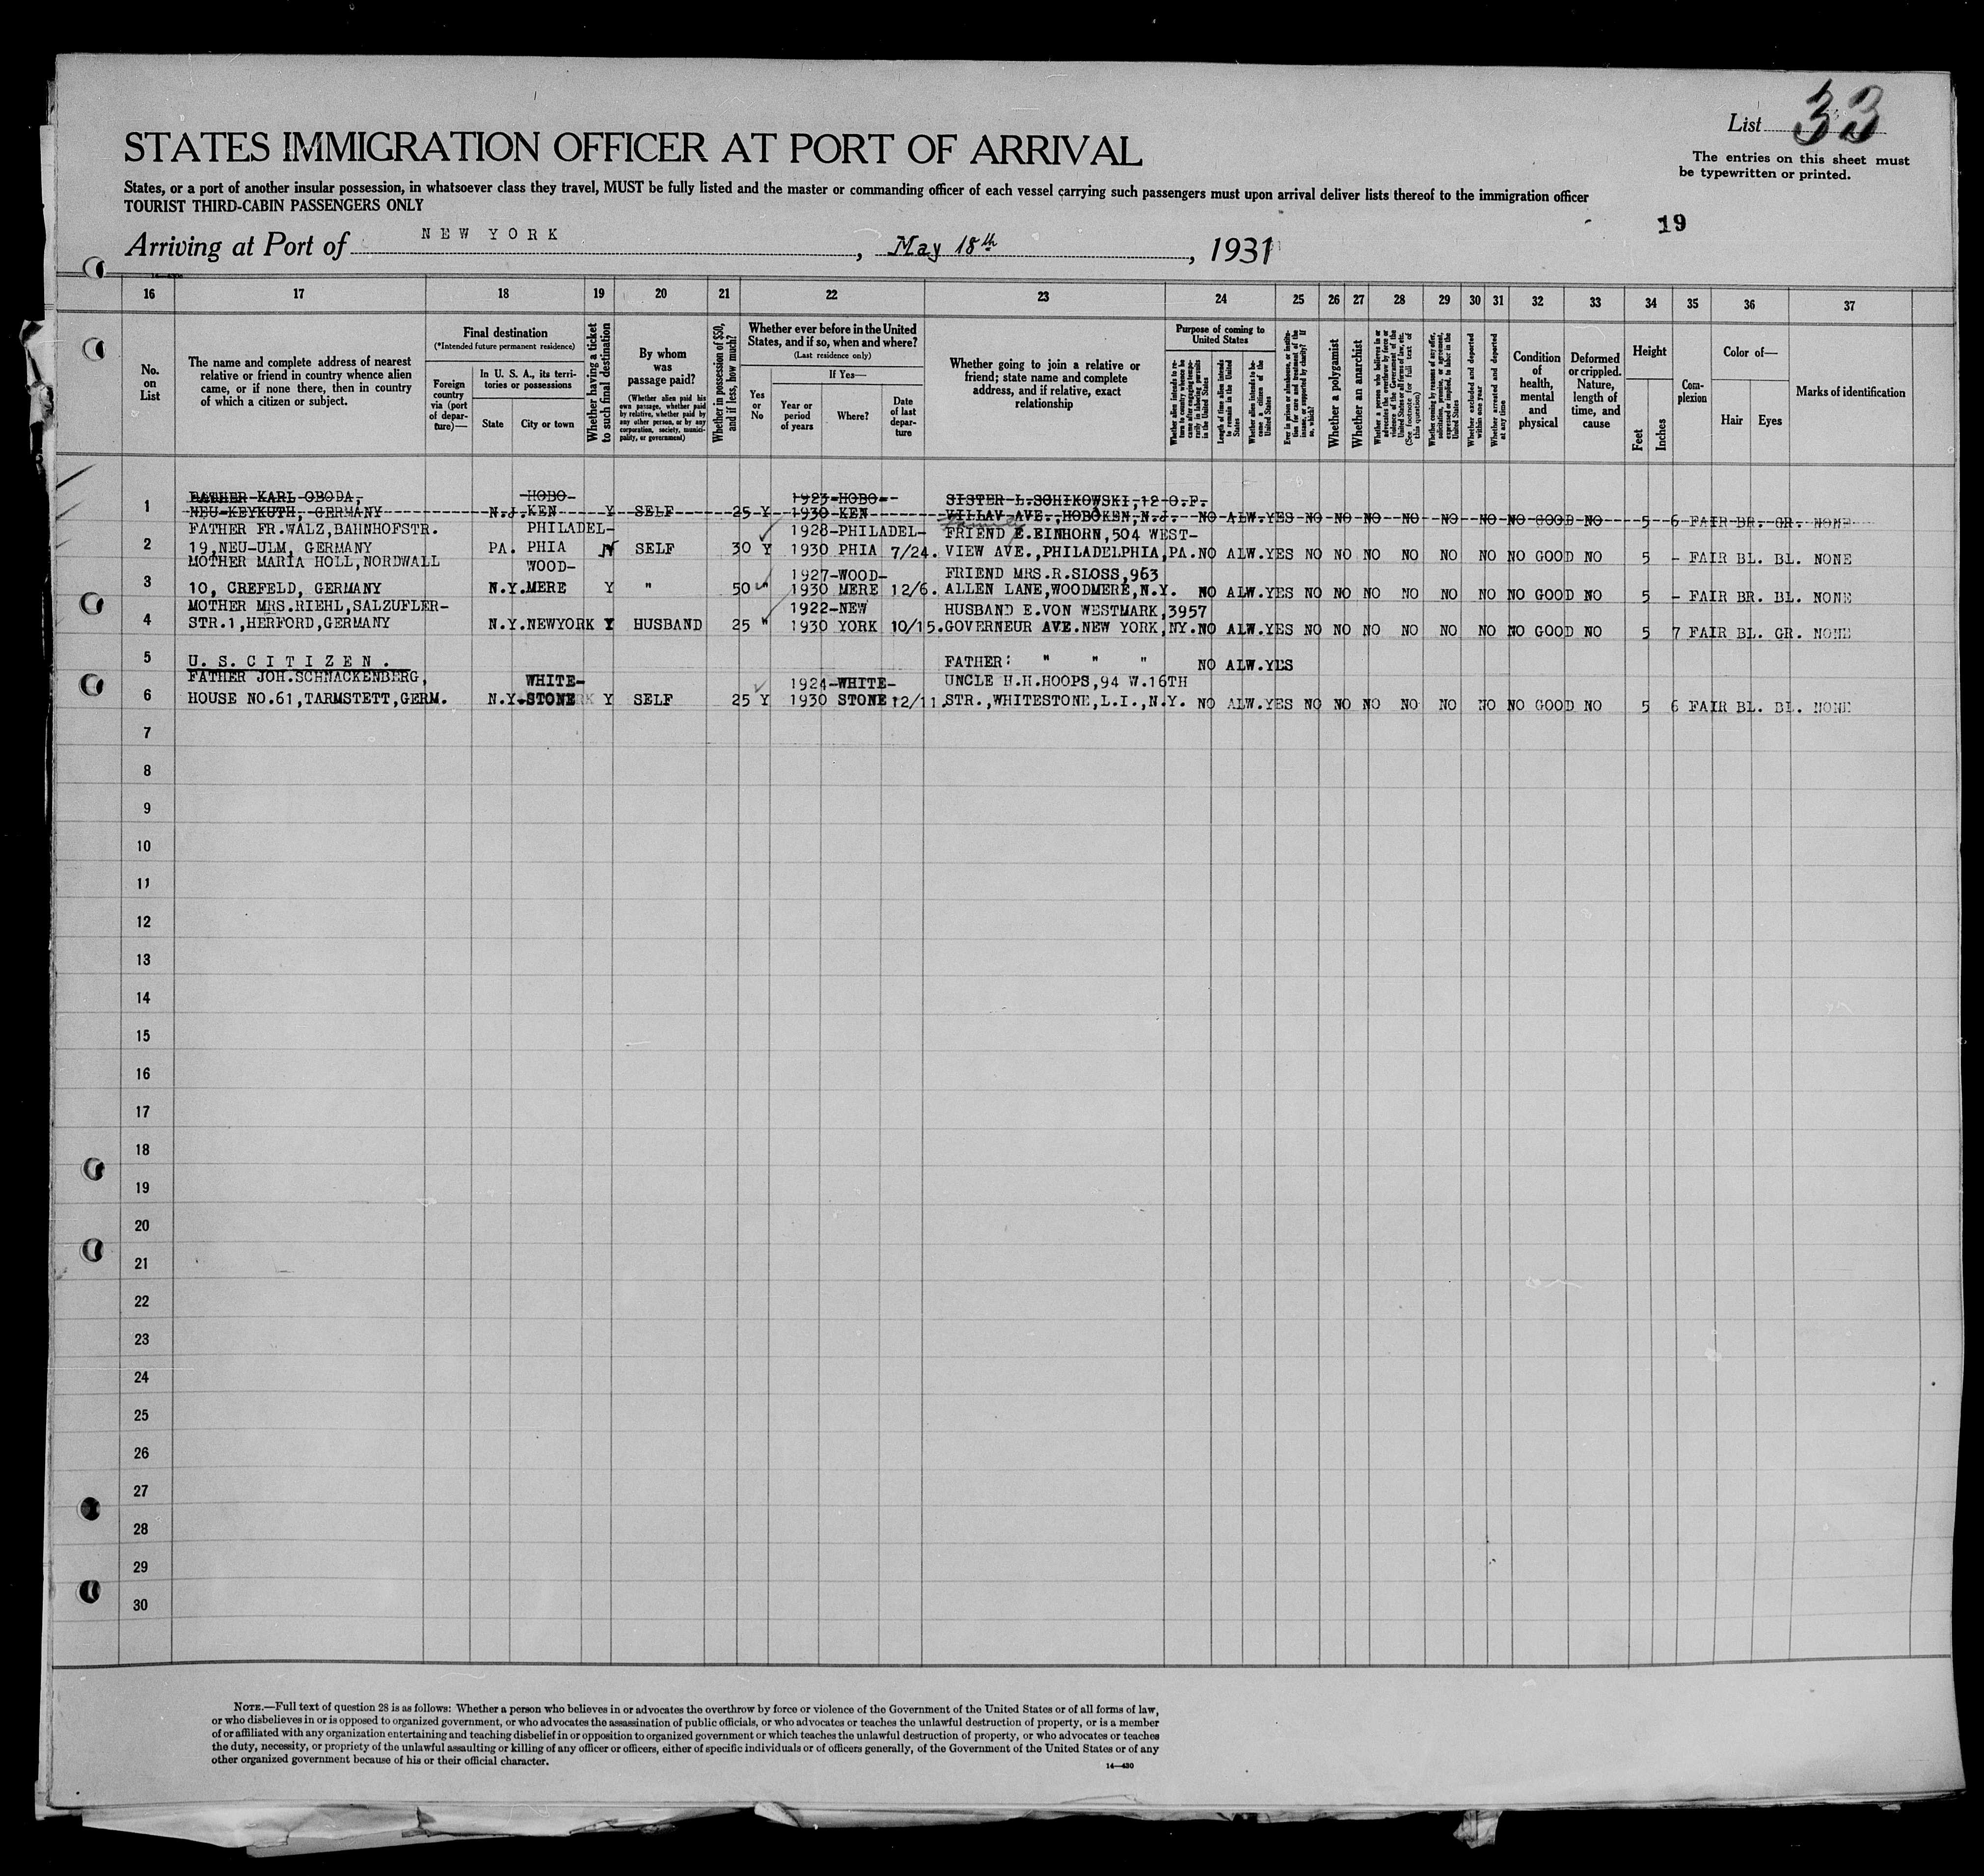 List 33
STATES IMMIGRATION OFFICER AT PORT OF ARRIVAL
The entries on this sheet must
be typewritten or printed.
States, or a port of another insular possession, in whatsoever class they travel, MUST be fully listed and the master or commanding officer of each vessel carrying such passengers must upon arrival deliver lists thereof to the immigration officer
TOURIST THIRD-CABIN PASSENGERS ONLY
19
Arriving at Port of NEW YORK, May 18th, 1931
16 17 18 19 20 21 22 23 24 25 26 27 28 29 30 31 32 33 34 35 36 37
No.
on
List
The name and complete address of nearest
relative or friend in country whence alien
came, or if none there, then in country
of which a citizen or subject.
Final destination
(*Intended future permanent residence)
Foreign
country
via (port
of depar-
ture)—
In U. S. A., its terri-
tories or possessions
State
City or town
Whether having a ticket
to such final destination
By whom
was
passage paid?
(Whether alien paid his
own passage, whether paid
by relative, whether paid by
any other person, or by any
corporation, society, munici-
pality, or government)
Whether in possession of $50,
and if less, how much?
Whether ever before in the United
States, and if so, when and where?
(Last residence only)
Yes
or
No
If Yes—
Year or
period
of years
Where?
Date
of last
depar-
ture
Whether going to join a relative or
friend; state name and complete
address, and if relative, exact
relationship
Purpose of coming to
United States
Whether alien intends to re-
turn to country whence he
came after engaging tempo-
rarily in laboring pursuits
in the United States
Length of time alien intends
to remain in the United
States
Whether alien intends to be-
come a citizen of the
United States
Ever in prison or almshouse, or institu-
tion for care and treatment of the
insane, or supported by charity? If
so, which?
Whether a polygamist
Whether an anarchist
Whether a person who believes in or
advocates the overthrow by force or
violence of the Government of the
United States or all forms of law, etc.
(See footnote for full text of
this question)
Whether coming by reason of any offer,
solicitation, promise, or agreement,
expressed or implied, to labor in the
United States
Whether excluded and deported
within one year
Whether arrested and deported
at any time
Condition
of
health,
mental
and
physical
Deformed
or crippled.
Nature,
length of
time, and
cause
Height
Feet
Inches
Com-
plexion
Color of—
Hair
Eyes
Marks of identification
FATHER KARL OBODA, HOBO- 1923-HOBO- SISTER L.SCHIKOWSKI,12 O.P.
1 NEU-KEYKUTH, GERMANY N.J. KEN Y SELF 25 Y 1930 KEN VILLAV AVE.,HOBOKEN,N.J. NO ALW.YES NO NO NO NO NO NO NO GOOD NO 5 6 FAIR BR. GR. NONE
FATHER FR.WALZ,BAHNHOFSTR. PHILADEL- 1928-PHILADEL- FRIEND E.EINHORN,504 WEST-
2 19,NEU-ULM, GERMANY PA. PHIA N SELF 30 Y 1930 PHIA 7/24. VIEW AVE.,PHILADELPHIA,PA. NO ALW.YES NO NO NO NO NO NO NO GOOD NO 5 - FAIR BL. BL. NONE
MOTHER MARIA HOLL,NORDWALL WOOD- 1927-WOOD- FRIEND MRS.R.SLOSS,963
3 10, CREFELD, GERMANY N.Y. MERE Y " 50 " 1930 MERE 12/6. ALLEN LANE,WOODMERE,N.Y. NO ALW.YES NO NO NO NO NO NO NO GOOD NO 5 - FAIR BR. BL. NONE
MOTHER MRS.RIEHL,SALZUFLER- 1922-NEW HUSBAND E.VON WESTMARK,3957
4 STR.1,HERFORD,GERMANY N.Y. NEWYORK Y HUSBAND 25 " 1930 YORK 10/15. GOVERNEUR AVE.NEW YORK,NY. NO ALW.YES NO NO NO NO NO NO NO GOOD NO 5 7 FAIR BL. GR. NONE
5 U. S. C I T I Z E N . FATHER: " " " NO ALW.YES
FATHER JOH.SCHNACKENBERG, WHITE- 1924-WHITE- UNCLE H.H.HOOPS,94 W.16TH
6 HOUSE NO.61,TARMSTETT,GERM. N.Y. STONE Y SELF 25 Y 1930 STONE 12/11. STR.,WHITESTONE,L.I.,N.Y. NO ALW.YES NO NO NO NO NO NO NO GOOD NO 5 6 FAIR BL. BL. NONE
7
8
9
10
11
12
13
14
15
16
17
18
19
20
21
22
23
24
25
26
27
28
29
30
NOTE.—Full text of question 28 is as follows: Whether a person who believes in or advocates the overthrow by force or violence of the Government of the United States or of all forms of law,
or who disbelieves in or is opposed to organized government, or who advocates the assassination of public officials, or who advocates or teaches the unlawful destruction of property, or is a member
of or affiliated with any organization entertaining and teaching disbelief in or opposition to organized government or which teaches the unlawful destruction of property, or who advocates or teaches
the duty, necessity, or propriety of the unlawful assaulting or killing of any officer or officers, either of specific individuals or of officers generally, of the Government of the United States or of any
other organized government because of his or their official character.
14—430